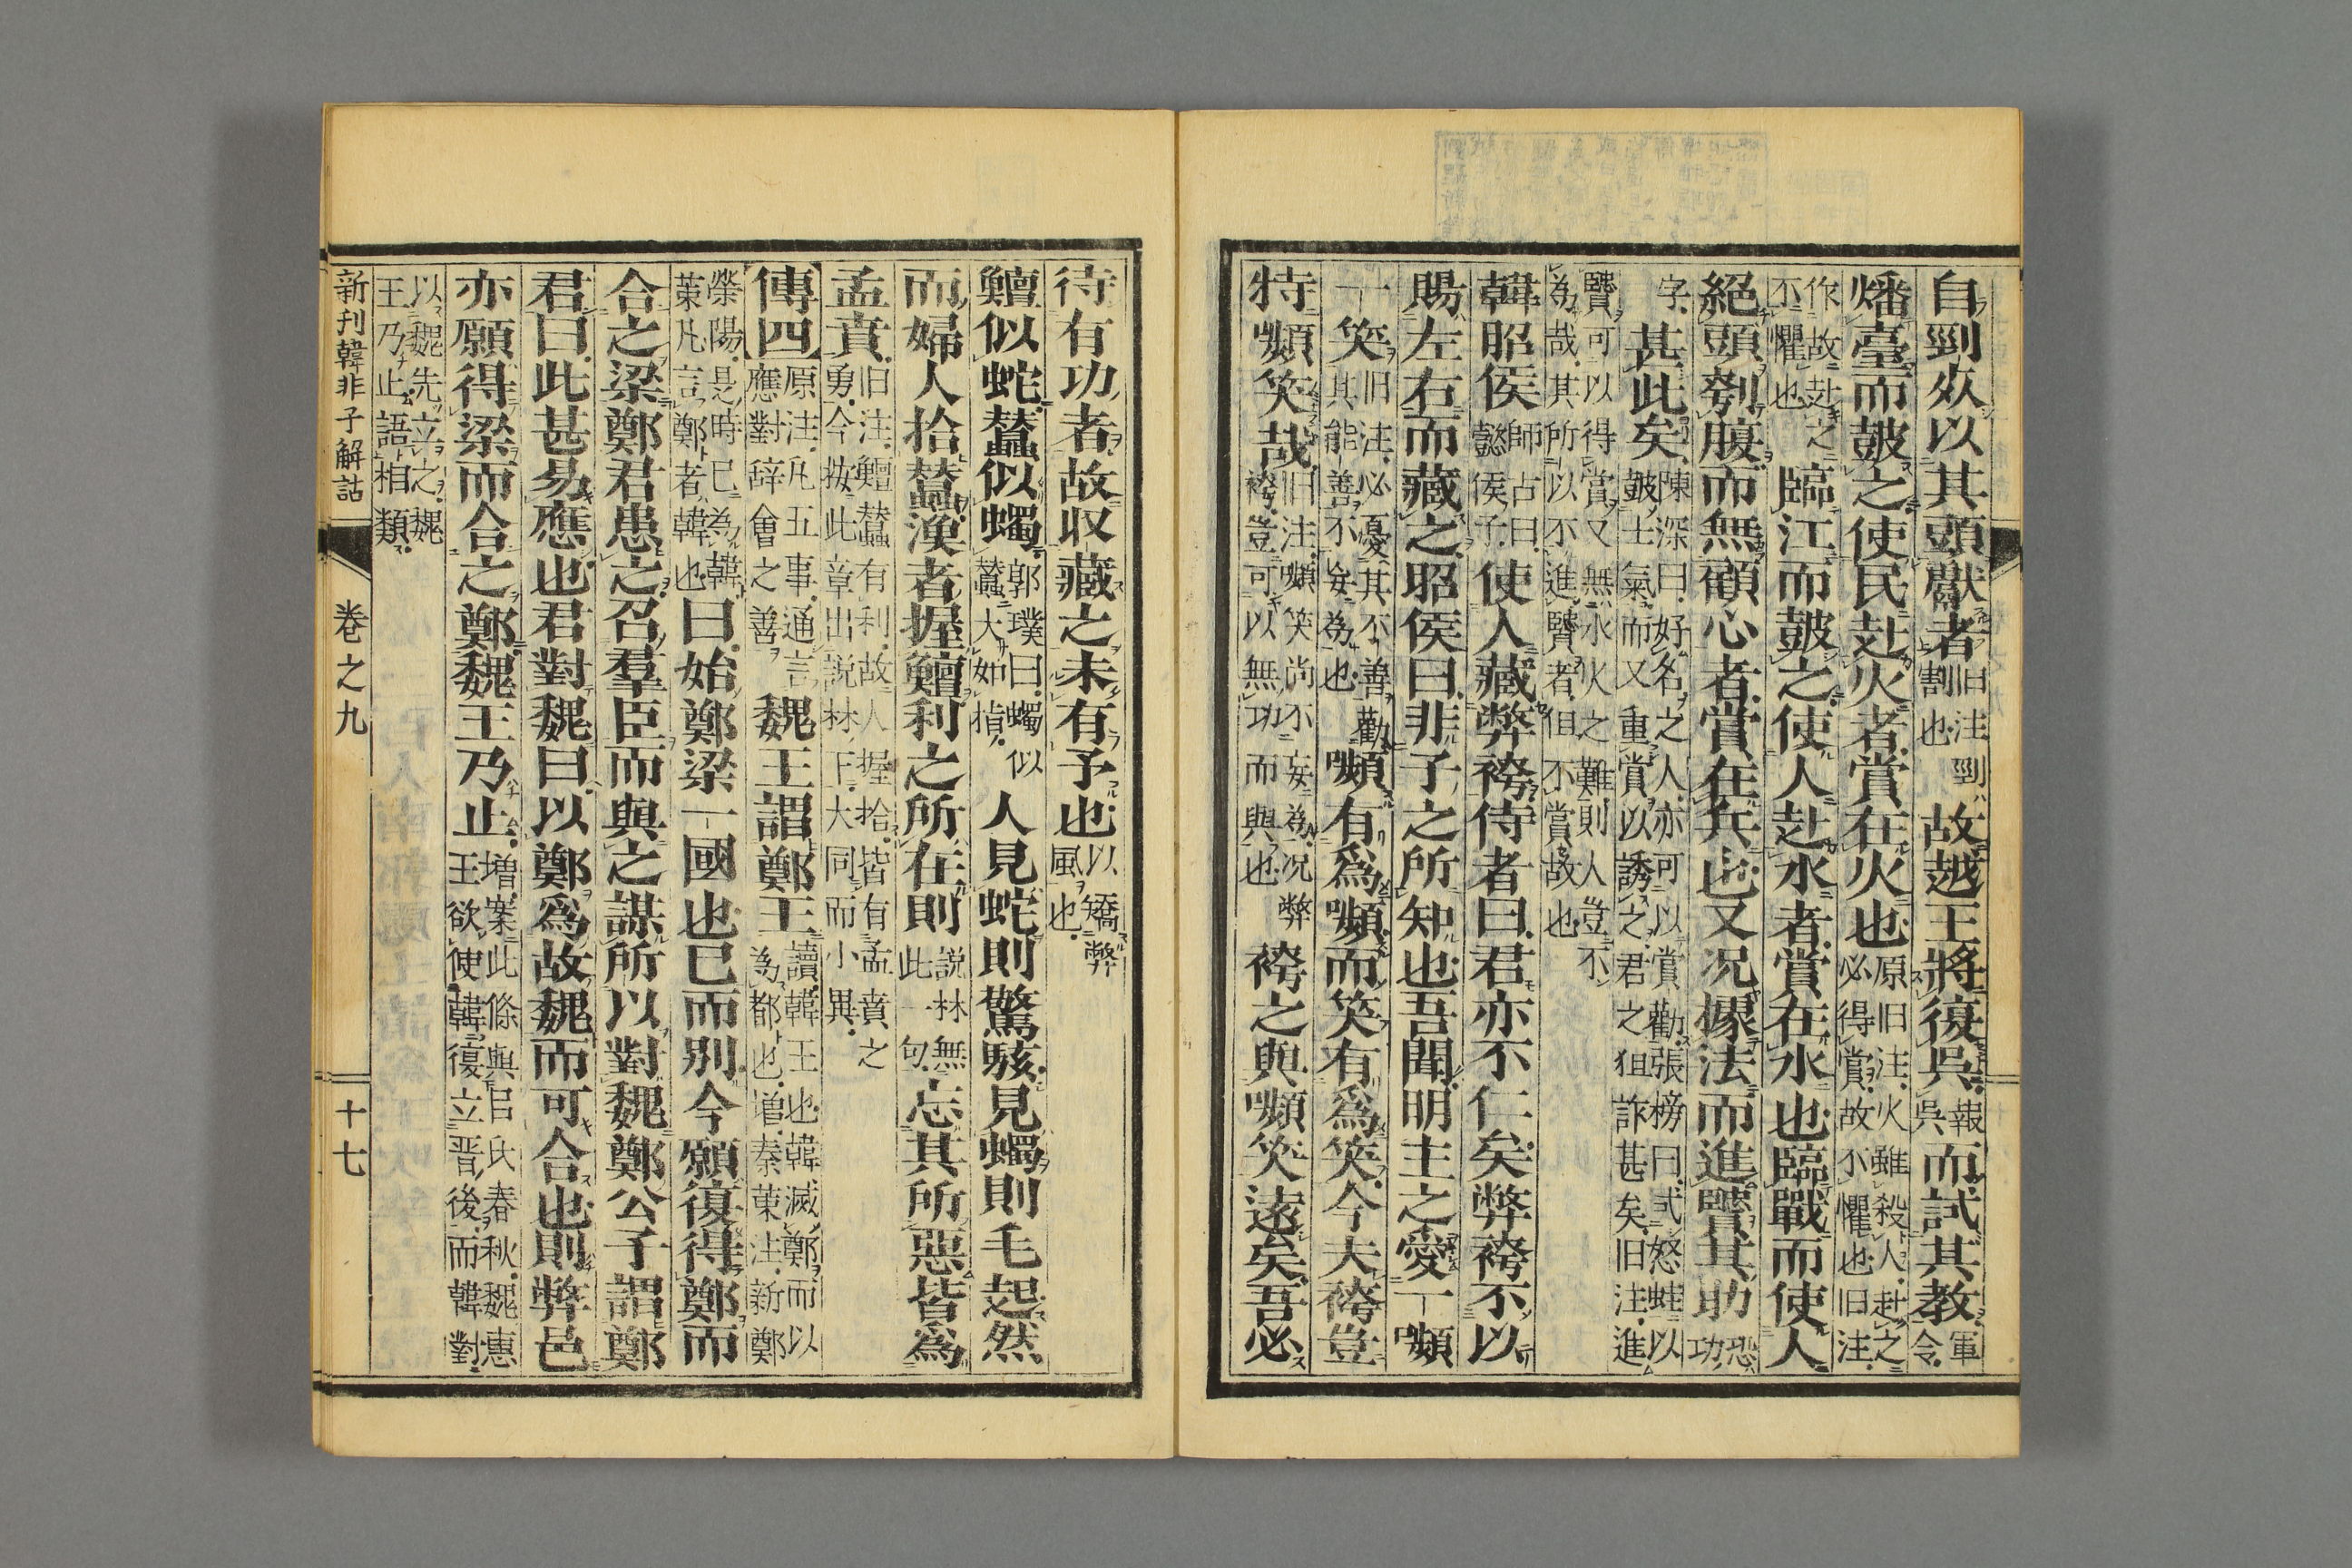 自剄死以其頭獻者旧注剄割也故越王將復吳報吳而試其教軍令
燔臺而皷之使民赴火者賞在火也原旧注火雖殺人赴之必得賞故不懼也旧注
作故赴之不懼也臨江而皷之使人赴水者賞在水也臨戰而使人
絕頭刳腹而無顧心者賞在兵也又况㨿法而進賢其助恐功
字甚此矣陳深曰好名之人亦可以賞勸張榜曰式怒蛙以皷士氣而又重賞以誘之君之狙詐甚矣旧注進
賢可以得賞又無水火之難則人豈不為哉其所以不進賢者但不賞故也
韓昭侯師古曰懿侯子使人藏弊袴侍者曰君亦不仁矣弊袴不以
賜左右而藏之昭侯曰非子之所知也吾聞明主之愛一嚬
一笑旧注必憂其不善勸其能善不妄為也嚬有爲嚬而笑有爲笑今夫袴豈
特嚬笑哉旧注嚬笑尚不妄為况弊袴豈可以無功而與也袴之與嚬笑遠矣吾必
待有功者故収藏之未有予也以矯弊風也
鱣似蛇蠶似蠋郭璞曰蠋似蠶大如指人見蛇則驚駭見蠋則毛起然
而婦人拾蠶漁者握鱣利之所在則說林無此一句忘其所惡皆爲
孟賁旧注鱣蠶有利故人握拾皆有孟賁之勇今按此章出說林下大同而小異
傳四原注凡五事通言應對辞會之善魏王謂鄭王讀韓王也韓滅鄭而以為都也增秦菓注新鄭
滎陽是時已為韓菓凡言鄭者韓也曰始鄭梁一國也已而別今願復得鄭而
合之梁鄭君患之召羣臣而與之謀所以對魏鄭公子謂鄭
君曰此甚易應也君對魏曰以鄭爲故魏而可合也則弊邑
亦願得梁而合之鄭魏王乃止增案此條與呂氏春秋魏惠王欲使韓復立晋後而韓對
以魏先立之魏王乃止語相類
新刊韓非子解詁
卷之九
十七